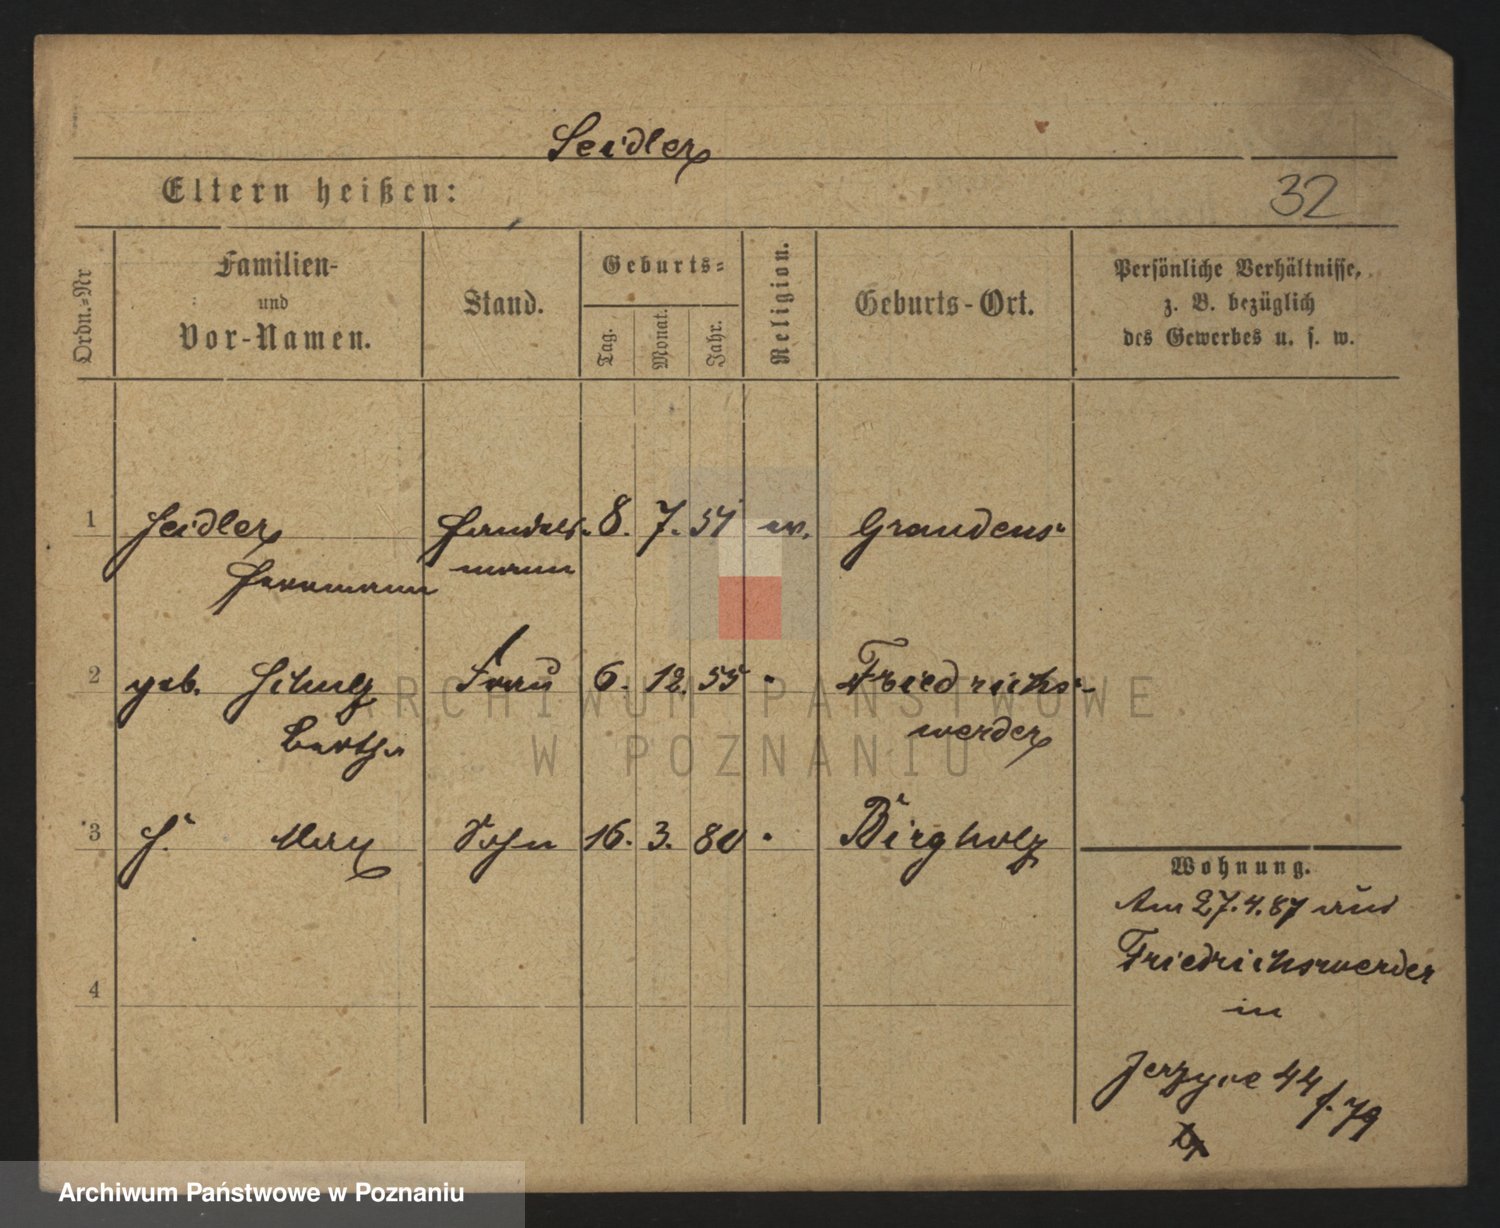 Seidler
Eltern heißen:
32
Ordn.-Nr
Familien-
und
Vor-Namen.
Stand.
Geburts-
Tag.
Monat.
Jahr.
Religion.
Geburts-Ort.
Persönliche Verhältnisse,
z. B. bezüglich
des Gewerbes u. s. w.
1 Seidler Handels- 8. 7. 51 ev. Graudens
Herrmann mann
2 geb. Schulz Frau 6. 12. 55 " Friedrichs-
Bertha werder
3 S. Max Sohn 16. 3. 80 " Birgholz
4
Wohnung.
Am 27.4.87 aus
Friedrichswerder
in
Jerzyce 44
f. 79
ARCHIWUM PAŃSTWOWE
W POZNANIU
Archiwum Państwowe w Poznaniu